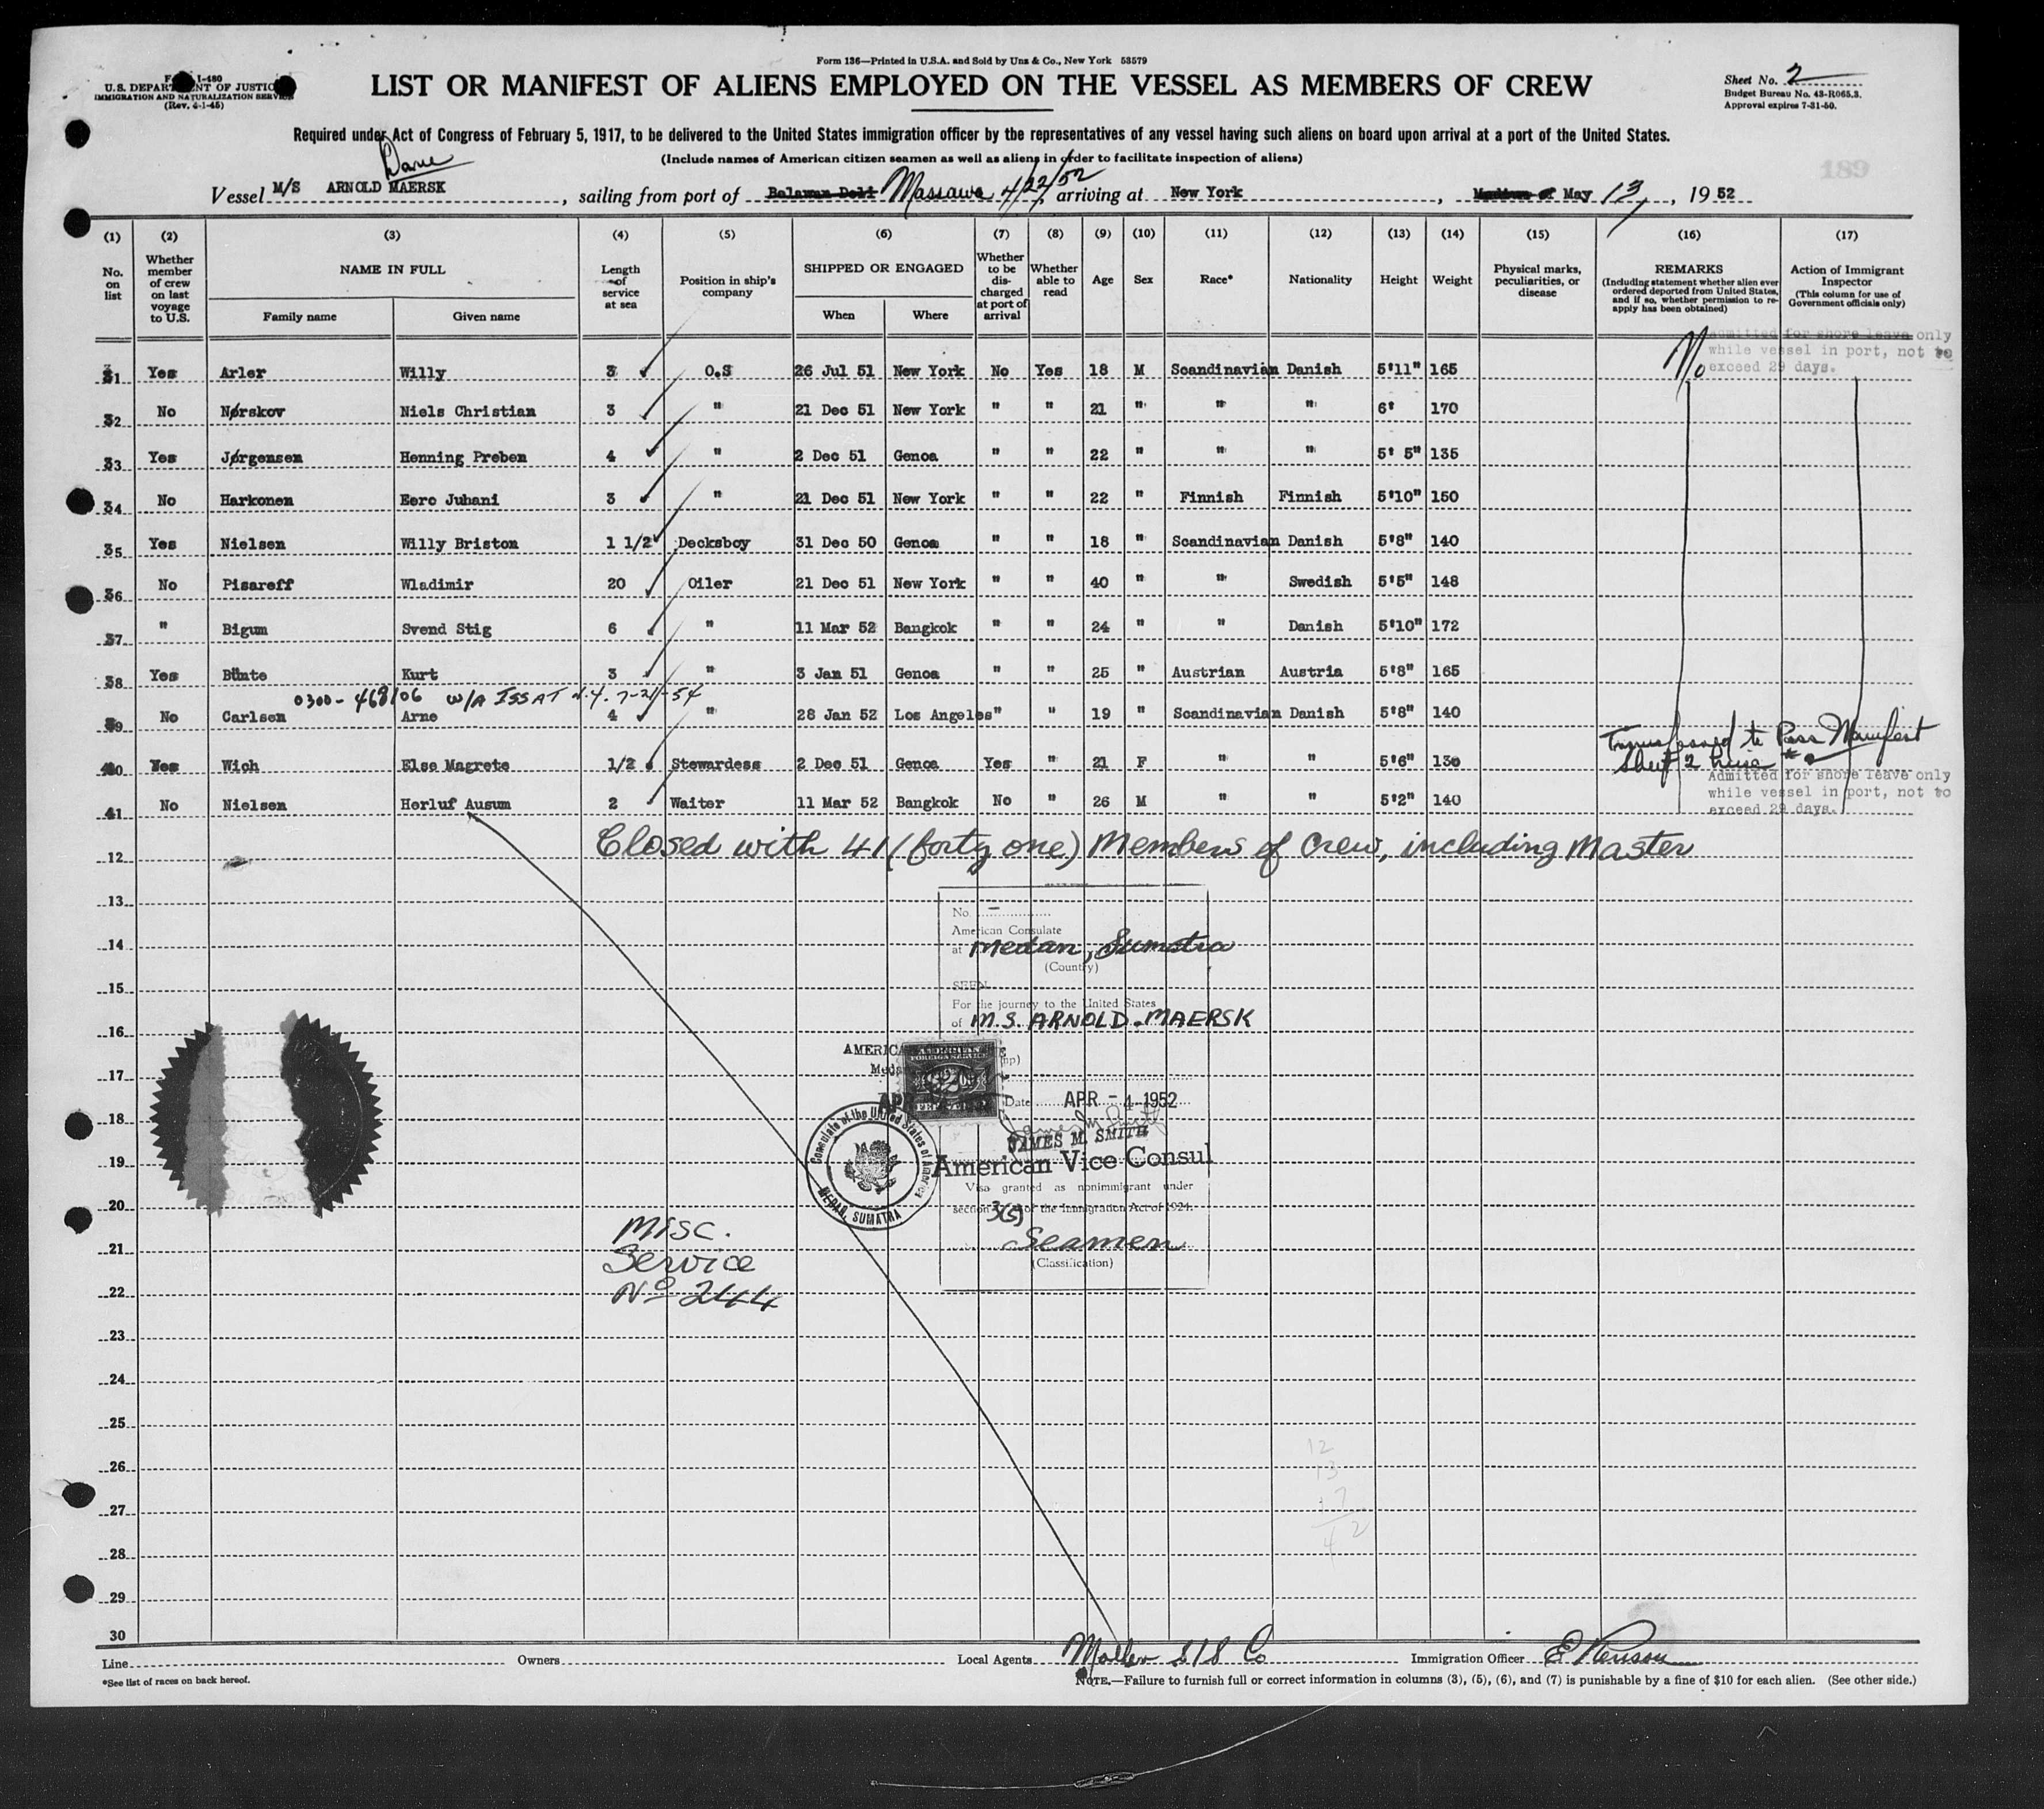 Form 136—Printed in U.S.A. and Sold by Unz & Co., New York 53579
I-480
U.S. DEPARTMENT OF JUSTICE
IMMIGRATION AND NATURALIZATION SERVICE
(Rev. 4-1-45)
LIST OR MANIFEST OF ALIENS EMPLOYED ON THE VESSEL AS MEMBERS OF CREW
Sheet No. 2
Budget Bureau No. 43-R065.3.
Approval expires 7-31-50.
Required under Act of Congress of February 5, 1917, to be delivered to the United States immigration officer by the representatives of any vessel having such aliens on board upon arrival at a port of the United States.
(Include names of American citizen seamen as well as aliens in order to facilitate inspection of aliens)
189
Dane
Vessel M/S ARNOLD MAERSK, sailing from port of Belawan Deli Massawa 4/22/52, arriving at New York, May 13, 1952
(1) (2) (3) (4) (5) (6) (7) (8) (9) (10) (11) (12) (13) (14) (15) (16) (17)
No. on list
Whether member of crew on last voyage to U.S.
NAME IN FULL
Family name
Given name
Length of service at sea
Position in ship's company
SHIPPED OR ENGAGED
When
Where
Whether to be discharged at port of arrival
Whether able to read
Age
Sex
Race*
Nationality
Height
Weight
Physical marks, peculiarities, or disease
REMARKS
(Including statement whether alien ever ordered deported from United States, and if so, whether permission to reapply has been obtained)
Action of Immigrant Inspector
(This column for use of Government officials only)
No
Admitted for shore leave only
while vessel in port, not to
exceed 29 days.
31 Yes Arler Willy 3 O.S 26 Jul 51 New York No Yes 18 M Scandinavian Danish 5'11" 165
32 No Nørskov Niels Christian 3 " 21 Dec 51 New York " " 21 " " " 6' 170
33 Yes Jørgensen Henning Preben 4 " 2 Dec 51 Genoa " " 22 " " " 5' 5" 135
34 No Harkonen Eero Juhani 3 " 21 Dec 51 New York " " 22 " Finnish Finnish 5'10" 150
35 Yes Nielsen Willy Briston 1 1/2 Decksboy 31 Dec 50 Genoa " " 18 " Scandinavian Danish 5'8" 140
36 No Pisareff Wladimir 20 Oiler 21 Dec 51 New York " " 40 " " Swedish 5'5" 148
37 " Bigum Svend Stig 6 " 11 Mar 52 Bangkok " " 24 " " Danish 5'10" 172
38 Yes Bünte Kurt 3 " 3 Jan 51 Genoa " " 25 " Austrian Austria 5'8" 165
0300-468106 W/A ISS AT N.Y. 7-21-54
39 No Carlsen Arne 4 " 28 Jan 52 Los Angeles " " 19 " Scandinavian Danish 5'8" 140
Transferred to Pass Manifest
40 Yes Wich Else Magrete 1/2 Stewardess 2 Dec 51 Genoa Yes " 21 F " " 5'6" 130
Sheet 2
Admitted for shore leave only
while vessel in port, not to
exceed 29 days.
41 No Nielsen Herluf Ausum 2 Waiter 11 Mar 52 Bangkok No " 26 M " " 5'2" 140
Closed with 41 (forty one) Members of Crew, including Master
12
13
14
15
16
17
18
19
20
21
22
23
24
25
26
27
28
29
30
No. –
American Consulate
at Medan, Sumatra
(Country)
SEEN
For the journey to the United States
of M.S. ARNOLD MAERSK
AMERICAN
FOREIGN SERVICE
Date APR - 4 1952
JAMES M. SMITH
American Vice Consul
Visa granted as nonimmigrant under
section 3(5) of the Immigration Act of 1924.
Seamen
(Classification)
Consulate of the United States of America
MEDAN, SUMATRA
Misc.
Service
No 244
12
13
17
42
Line
Owners
Local Agents Moller S/S Co
Immigration Officer
*See list of races on back hereof.
NOTE.—Failure to furnish full or correct information in columns (3), (5), (6), and (7) is punishable by a fine of $10 for each alien. (See other side.)